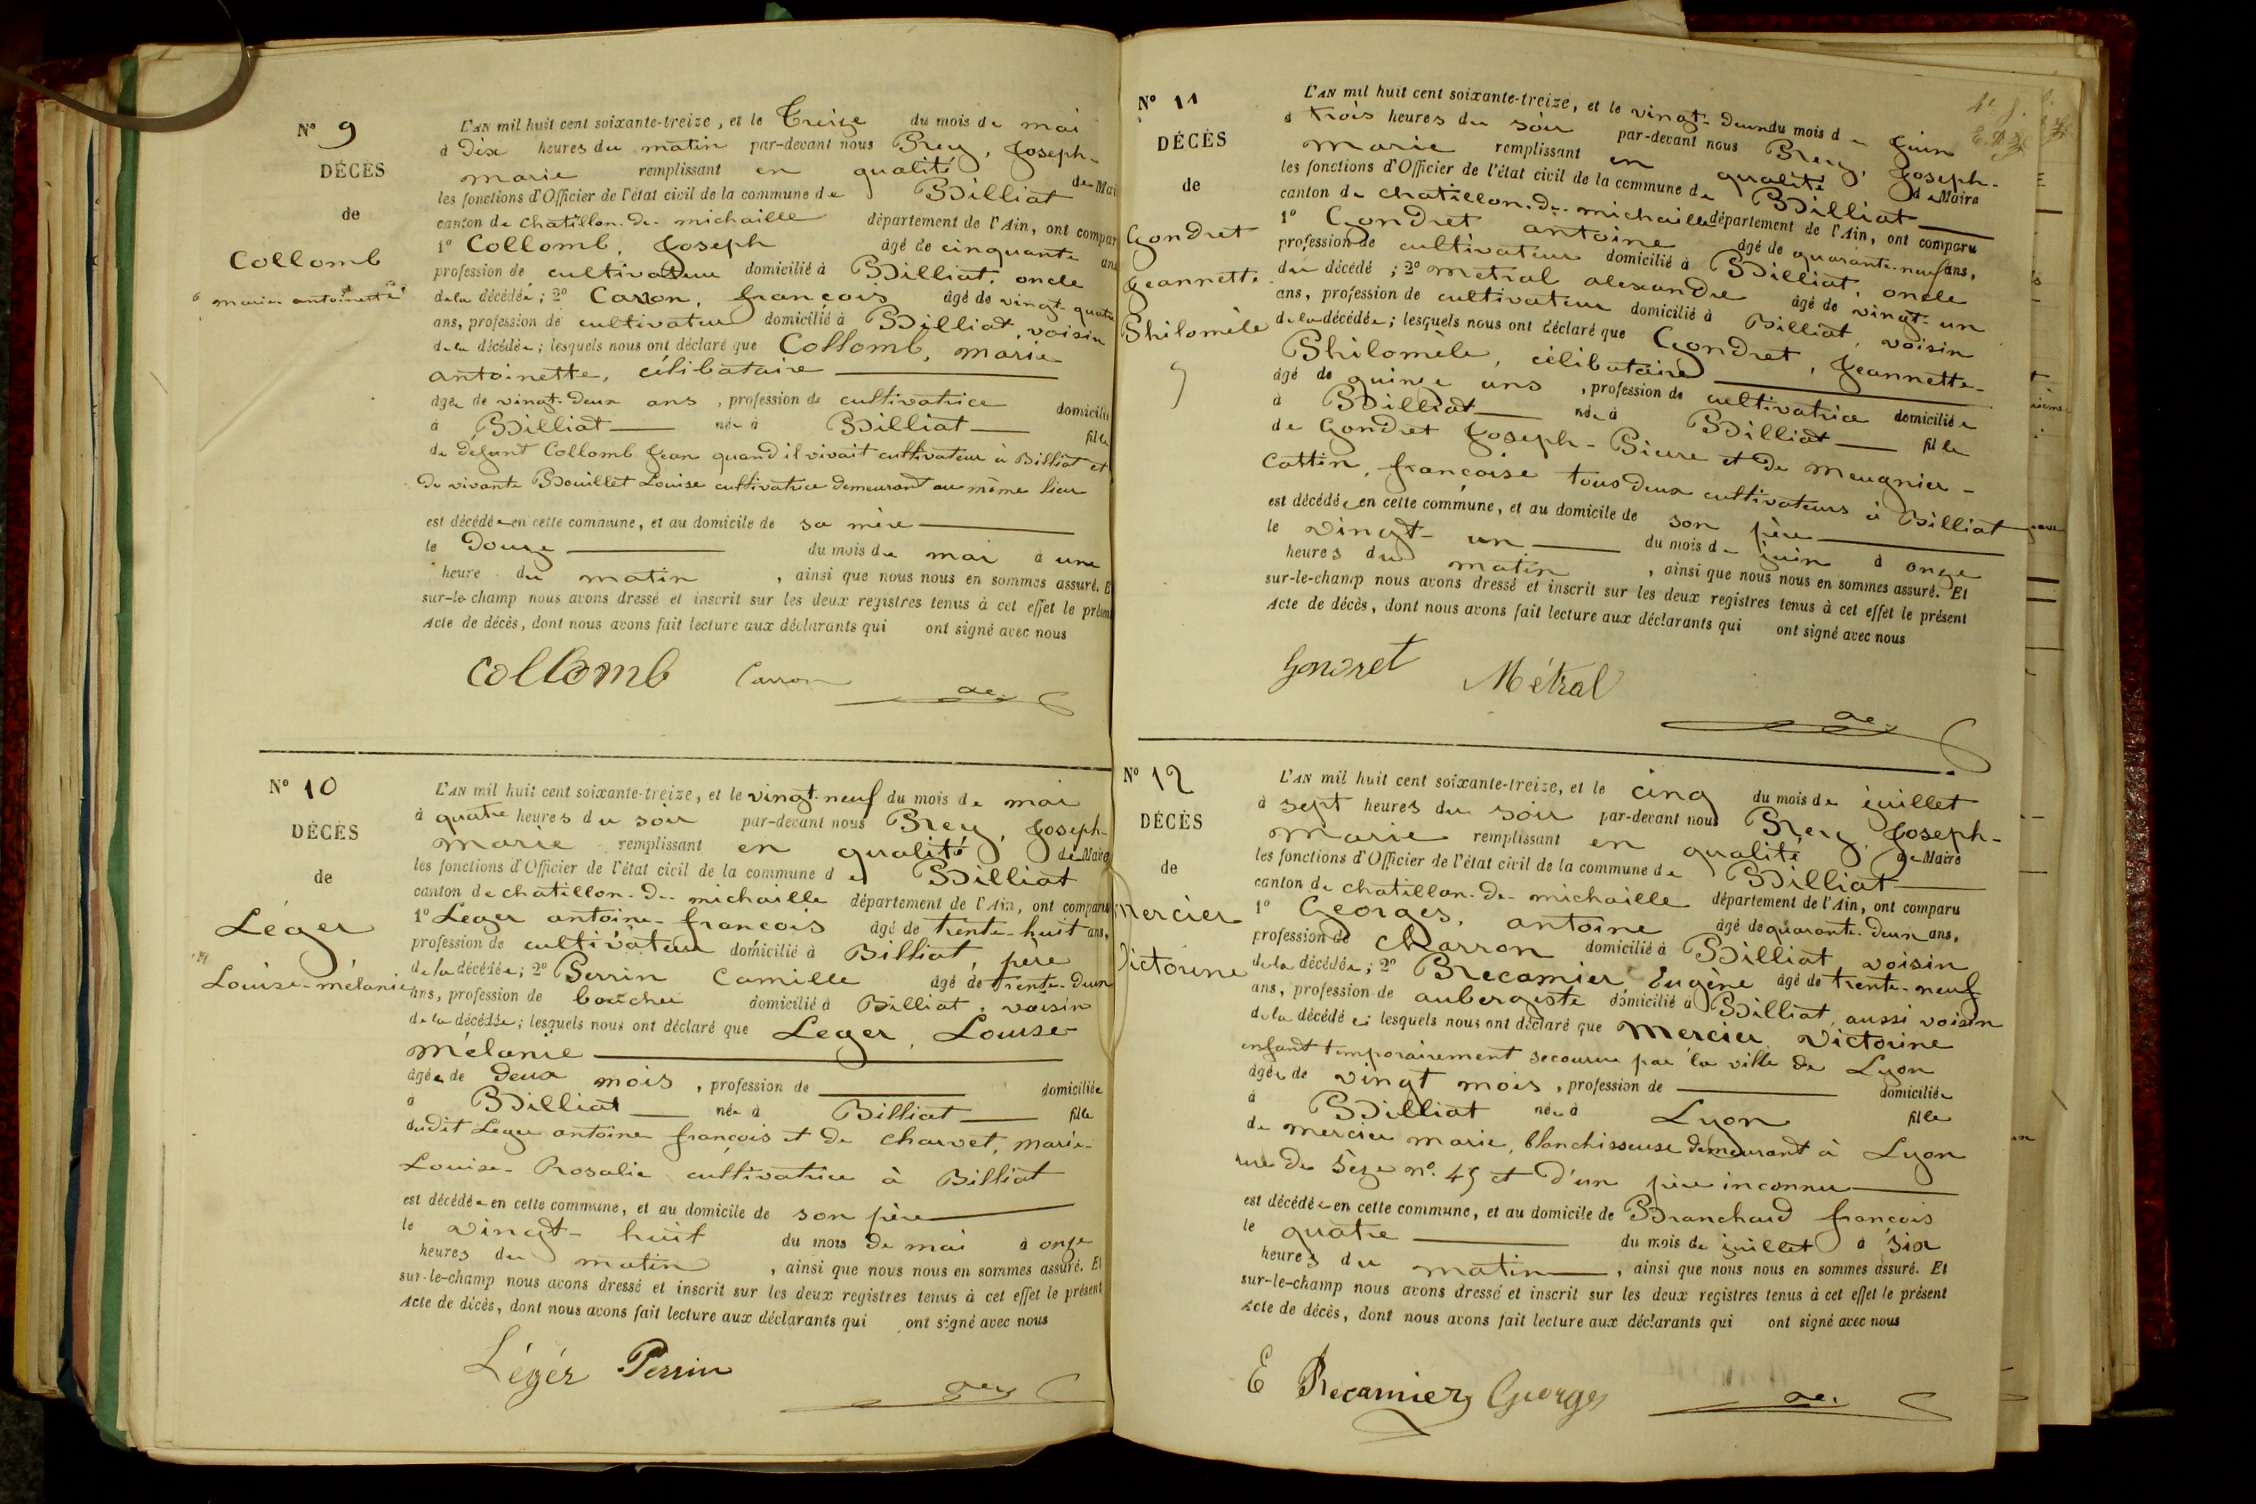 N° 9
DÉCÈS
de
Collomb
marie antoinette
L'AN mil huit cent soixante-treize, et le Treize du mois de mai
à Dix heures du matin par-devant nous Brey, Joseph-
marie remplissant en qualité de Mai
les fonctions d'Officier de l'état civil de la commune de Billiat
canton de chatillon-de-michaille département de l'Ain, ont compar
1° Collomb, Joseph âgé de cinquante ans
profession de cultivateur domicilié à Billiat, oncle
de la décédée; 2° Carron, françois âgé de vingt-quatre
ans, profession de cultivateur domicilié à Billiat, voisin
de la décédée; lesquels nous ont déclaré que Collomb, marie
antoinette, célibataire
âgée de vingt-deux ans, profession de cultivatrice domiciliée
à Billiat née à Billiat fille
de défunt Collomb Jean quand il vivait cultivateur à Billiat et
de vivante Bouillet Louise cultivatrice demeurant au même lieu
est décédée en cette commune, et au domicile de sa mère
le Douze du mois de mai à une
heure du matin, ainsi que nous nous en sommes assuré. E
sur-le-champ nous avons dressé et inscrit sur les deux registres tenus à cet effet le présen
Acte de décès, dont nous avons fait lecture aux déclarants qui ont signé avec nous
Collomb Carron
N° 10
DÉCÈS
de
Léger
Louise-mélanie
L'AN mil huit cent soixante-treize, et le vingt-neuf du mois de mai
à quatre heures du soir par-devant nous Brey, Joseph-
marie remplissant en qualité de Maire
les fonctions d'Officier de l'état civil de la commune de Billiat
canton de chatillon-de-michaille département de l'Ain, ont comparu
1° Leger antoine-francois âgé de trente-huit ans,
profession de cultivateur domicilié à Billiat, père
de la décédée; 2° Perrin Camille âgé de trente-deux
ans, profession de boucher domicilié à Billiat, voisin
de la décédée; lesquels nous ont déclaré que Leger, Louise
mélanie
âgée de deux mois, profession de domiciliée
à Billiat née à Billiat fille
dudit Léger antoine françois et de Charvet, marie-
Louise-Rosalie cultivatrice à Billiat
est décédée en cette commune, et au domicile de son père
le vingt-huit du mois de mai à onze
heures du matin, ainsi que nous nous en sommes assuré. Et
sur-le-champ nous avons dressé et inscrit sur les deux registres tenus à cet effet le présent
Acte de décès, dont nous avons fait lecture aux déclarants qui ont signé avec nous
Légér Perrin
N° 11
DÉCÈS
de
Gondret
Jeannette
Philomèle
L'AN mil huit cent soixante-treize, et le vingt-deux du mois de Juin
à trois heures du soir par-devant nous Brey, Joseph-
marie remplissant en qualité de Maire
les fonctions d'Officier de l'état civil de la commune de Billiat
canton de chatillon-de-michaille département de l'Ain, ont comparu
1° Gondret antoine âgé de quarante-neuf ans,
profession de cultivateur domicilié à Billiat, oncle
du décédé; 2° métral alexandre âgé de vingt-un
ans, profession de cultivateur domicilié à Billiat, voisin
de la décédée; lesquels nous ont déclaré que Gondret, Jeannette-
Philomèle, célibataire
âgé de quinze ans, profession de cultivatrice domiciliée
à Billiat née à Billiat fille
de Gondret Joseph-Pierre et de Meugnier-
Cattin, françoise tous deux cultivateurs à Billiat
est décédée en cette commune, et au domicile de son père
le vingt-un du mois de juin à onze
heures du matin, ainsi que nous nous en sommes assuré. Et
sur-le-champ nous avons dressé et inscrit sur les deux registres tenus à cet effet le présent
Acte de décès, dont nous avons fait lecture aux déclarants qui ont signé avec nous
Gondret Métral
N° 12
DÉCÈS
de
Mercier
Victorine
L'AN mil huit cent soixante-treize, et le cinq du mois de juillet
à sept heures du soir par-devant nous Brey, Joseph-
marie remplissant en qualité de Maire
les fonctions d'Officier de l'état civil de la commune de Billiat
canton de chatillon-de-michaille département de l'Ain, ont comparu
1° Georges, antoine âgé de quarante-deux ans,
profession de charron domicilié à Billiat, voisin
de la décédée; 2° Brecamier, Eugène âgé de trente-neuf
ans, profession de aubergiste domicilié à Billiat, aussi voisin
de la décédée; lesquels nous ont déclaré que Mercier, Victorine
enfant temporairement secourue par la ville de Lyon
âgée de vingt mois, profession de domiciliée
à Billiat née à Lyon fille
de mercier marie, blanchisseuse demeurant à Lyon
rue de Sèze n° 45 et d'un père inconnu
est décédée en cette commune, et au domicile de Branchard françois
le quatre du mois de juillet à six
heures du matin, ainsi que nous nous en sommes assuré. Et
sur-le-champ nous avons dressé et inscrit sur les deux registres tenus à cet effet le présent
Acte de décès, dont nous avons fait lecture aux déclarants qui ont signé avec nous
E Recamier Georges